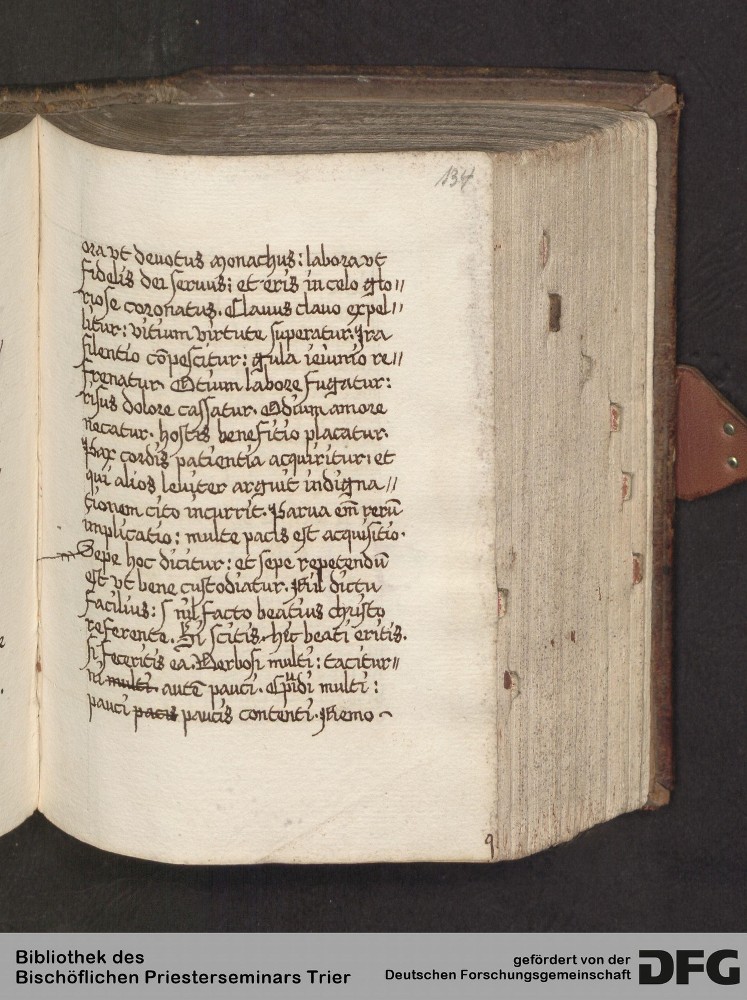 134
ora vt deuotus monachus: labora vt
fidelis dei seruus: et eris in celo glo//
riose coronatus. Clauus clauo expel//
litur: vitium virtute superatur. Ira
silentio cōpescitur: gula ieiunio re//
frenatur. Otium labore fugatur:
risus dolore cassatur. Odium amore
necatur. hostis benefitio placatur.
Pax cordis patientia acquiritur: et
qui alios leuiter arguit indigna//
tionem cito incurrit. Parua em̄ rerū
implicatio: multe pacis est acquisitio.
Sepe hoc dicitur: et sepe repetendū
est vt bene custodiatur. Nil dictu
facilius: s nil facto beatius christo
referente. Si scitis hec beati eritis.
si feceritis ea. Verbosi multi: tacitur//
ni multi. autē pauci. Cupidi multi:
pauci pacis paucis contenti. Nemo
9
Bibliothek des
Bischöflichen Priesterseminars Trier
gefördert von der
Deutschen Forschungsgemeinschaft
DFG